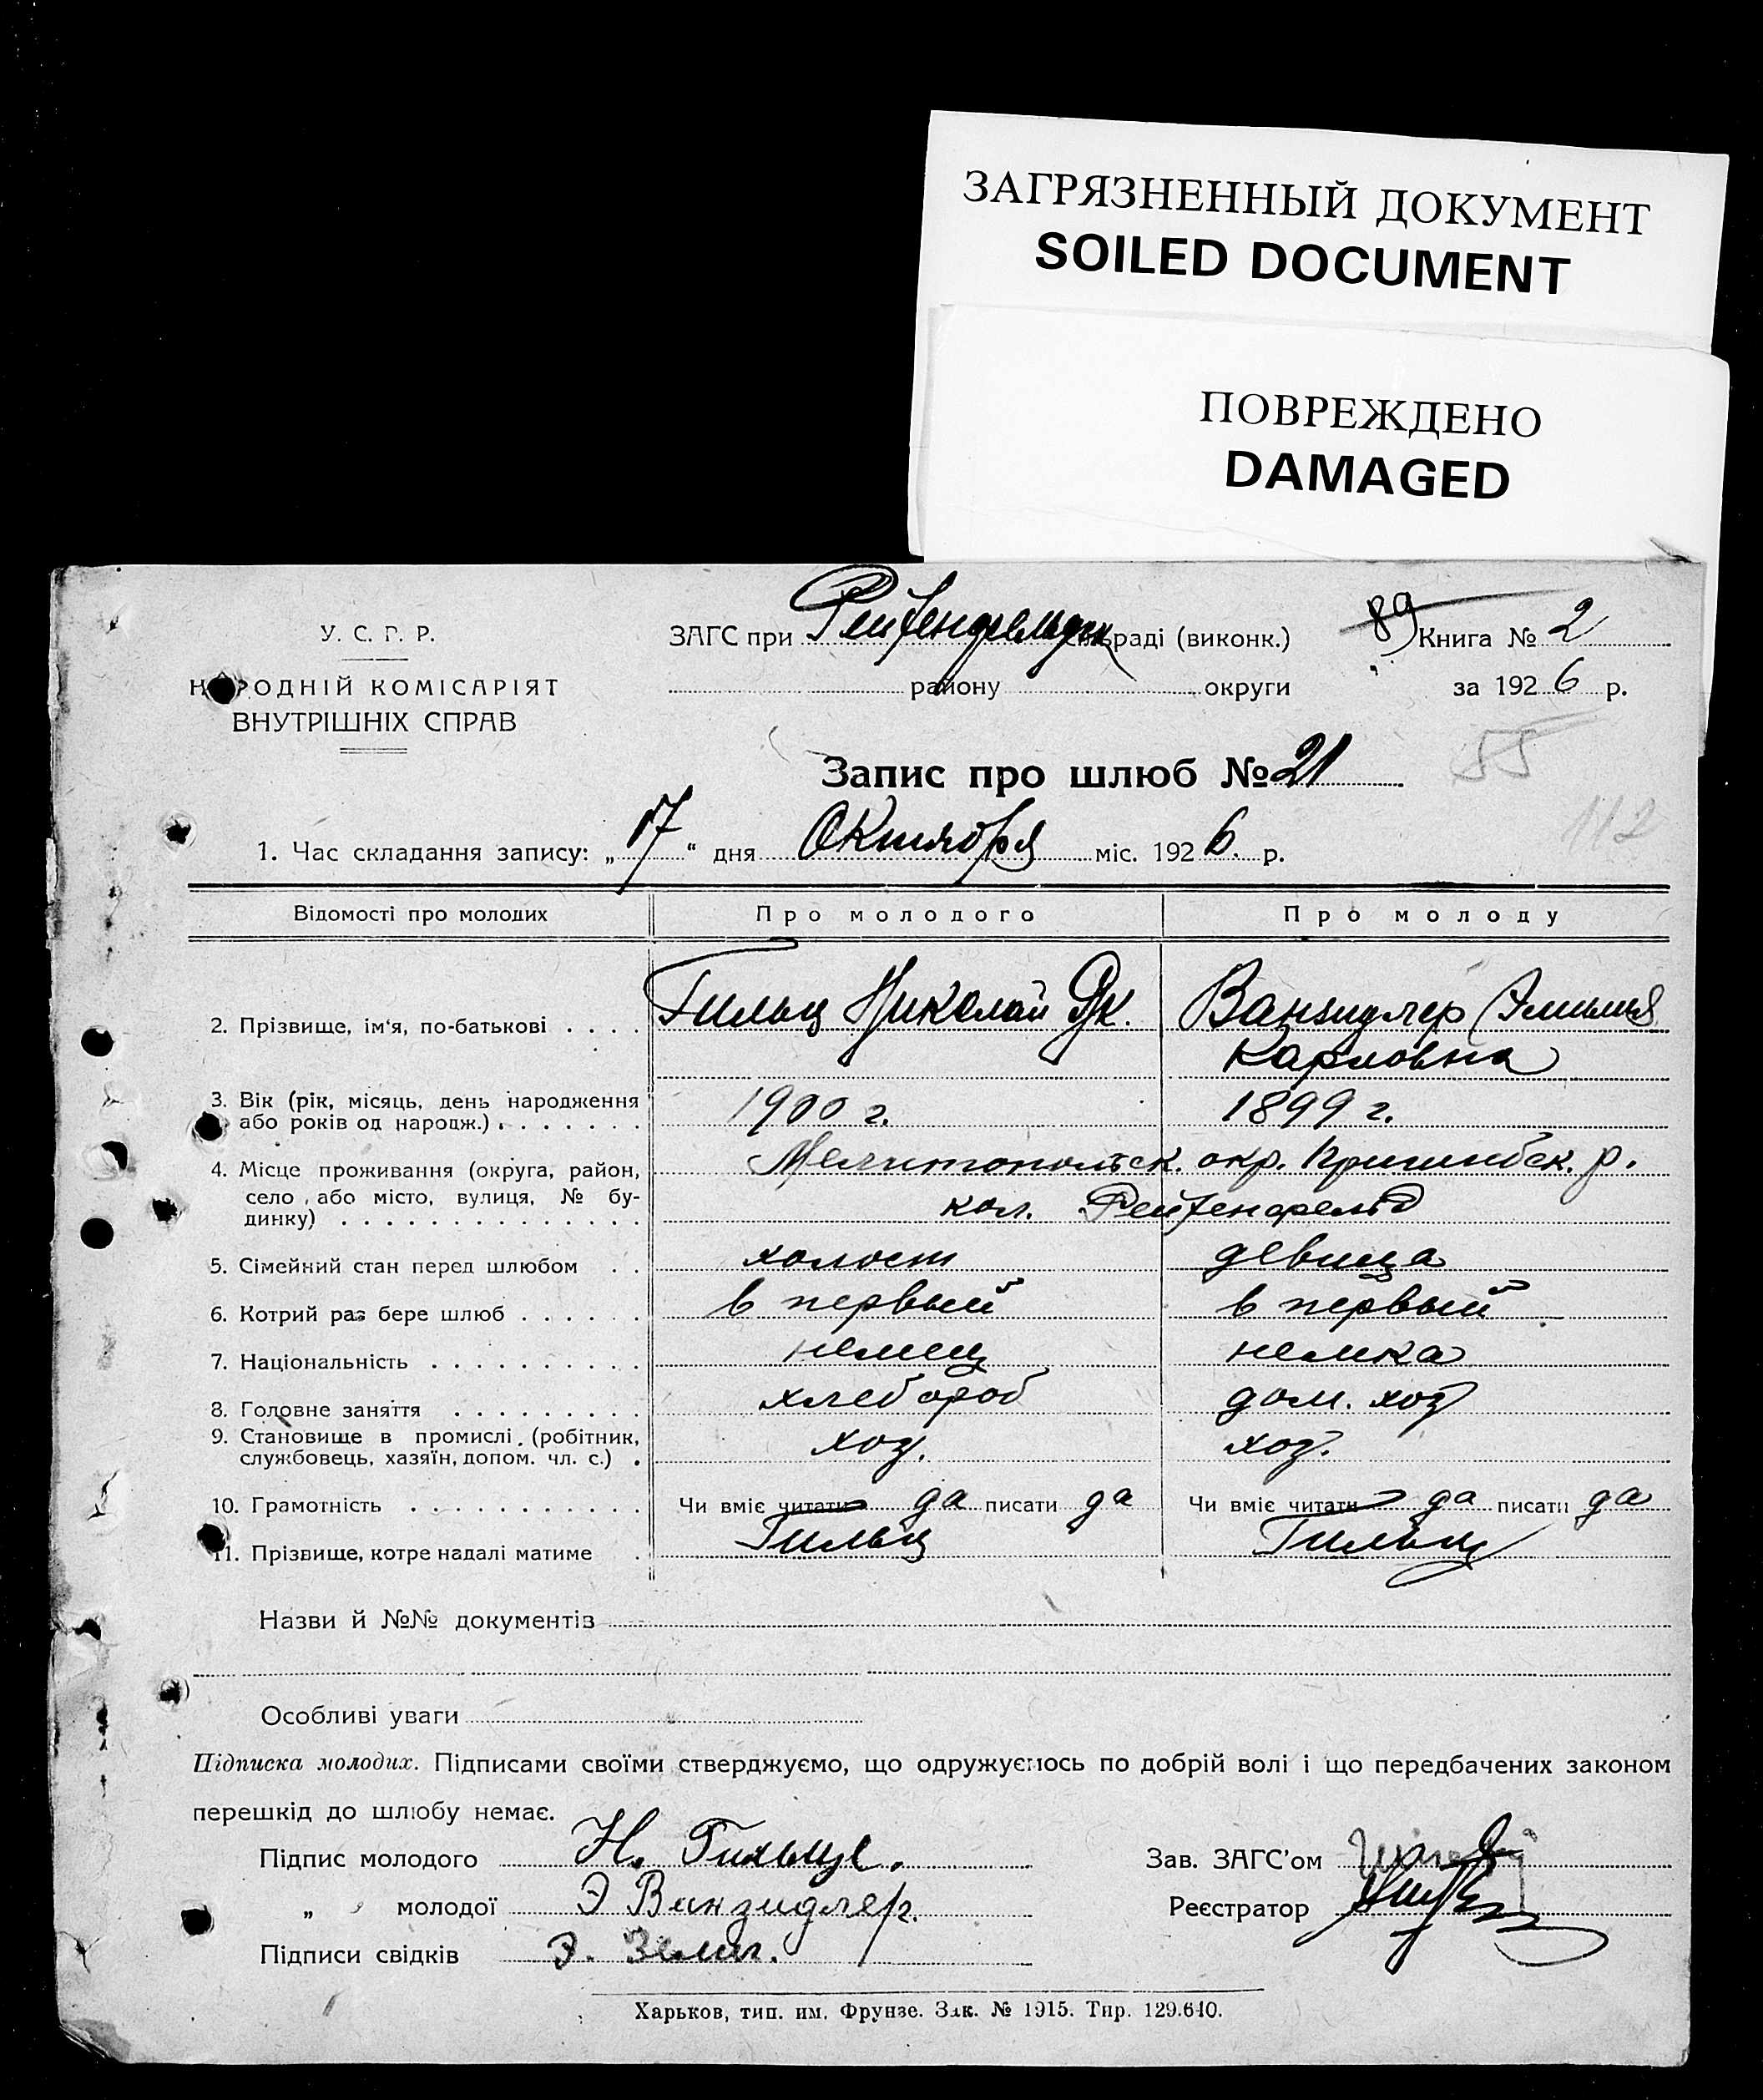 ЗАГРЯЗНЕННЫЙ ДОКУМЕНТ
SOILED DOCUMENT
ПОВРЕЖДЕНО
DAMAGED
У. С. Р. Р.
НАРОДНІЙ КОМІСАРІЯТ
ВНУТРІШНІХ СПРАВ
ЗАГС при Рейхенфельдск сільраді (виконк.)
району округи
89 Книга № 2
за 1926 р.
Запис про шлюб № 21
55
112
1. Час складання запису: „17“ дня Октября міс. 1926. р.
Відомості про молодих Про молодого Про молоду
2. Прізвище, ім'я, по-батькові . . . . Гильц Николай Як. Ванзидлер Эмилия
Карловна
3. Вік (рік, місяць, день народження 1900 г. 1899 г.
або років од народж.) . . . . . . .
4. Місце проживання (округа, район, Мелитопольск. окр. Пришибск. р.
село або місто, вулиця, № бу- кол. Рейхенфельд
динку) . . . . . . . . . . . . . .
5. Сімейний стан перед шлюбом . . холост девица
6. Котрий раз бере шлюб . . . . . . в первый в первый
7. Національність . . . . . . . . . . немец немка
8. Головне заняття . . . . . . . . . хлебороб дом. хоз
9. Становище в промислі (робітник, хоз. хоз.
службовець, хазяїн, допом. чл. с.) .
10. Грамотність . . . . . . . . . . . Чи вміє читати да писати да Чи вміє читати да писати да
11. Прізвище, котре надалі матиме . Гильц Гильц
Назви й №№ документів
Особливі уваги
Підписка молодих. Підписами своїми стверджуємо, що одружуємось по добрій волі і що передбачених законом
перешкід до шлюбу немає.
Підпис молодого Н. Гильце. Зав. ЗАГС'ом
„ молодої Э Ванзидлер. Реєстратор
Підписи свідків Э.
Харьков, тип. им. Фрунзе. Зак. № 1915. Тир. 129.640.